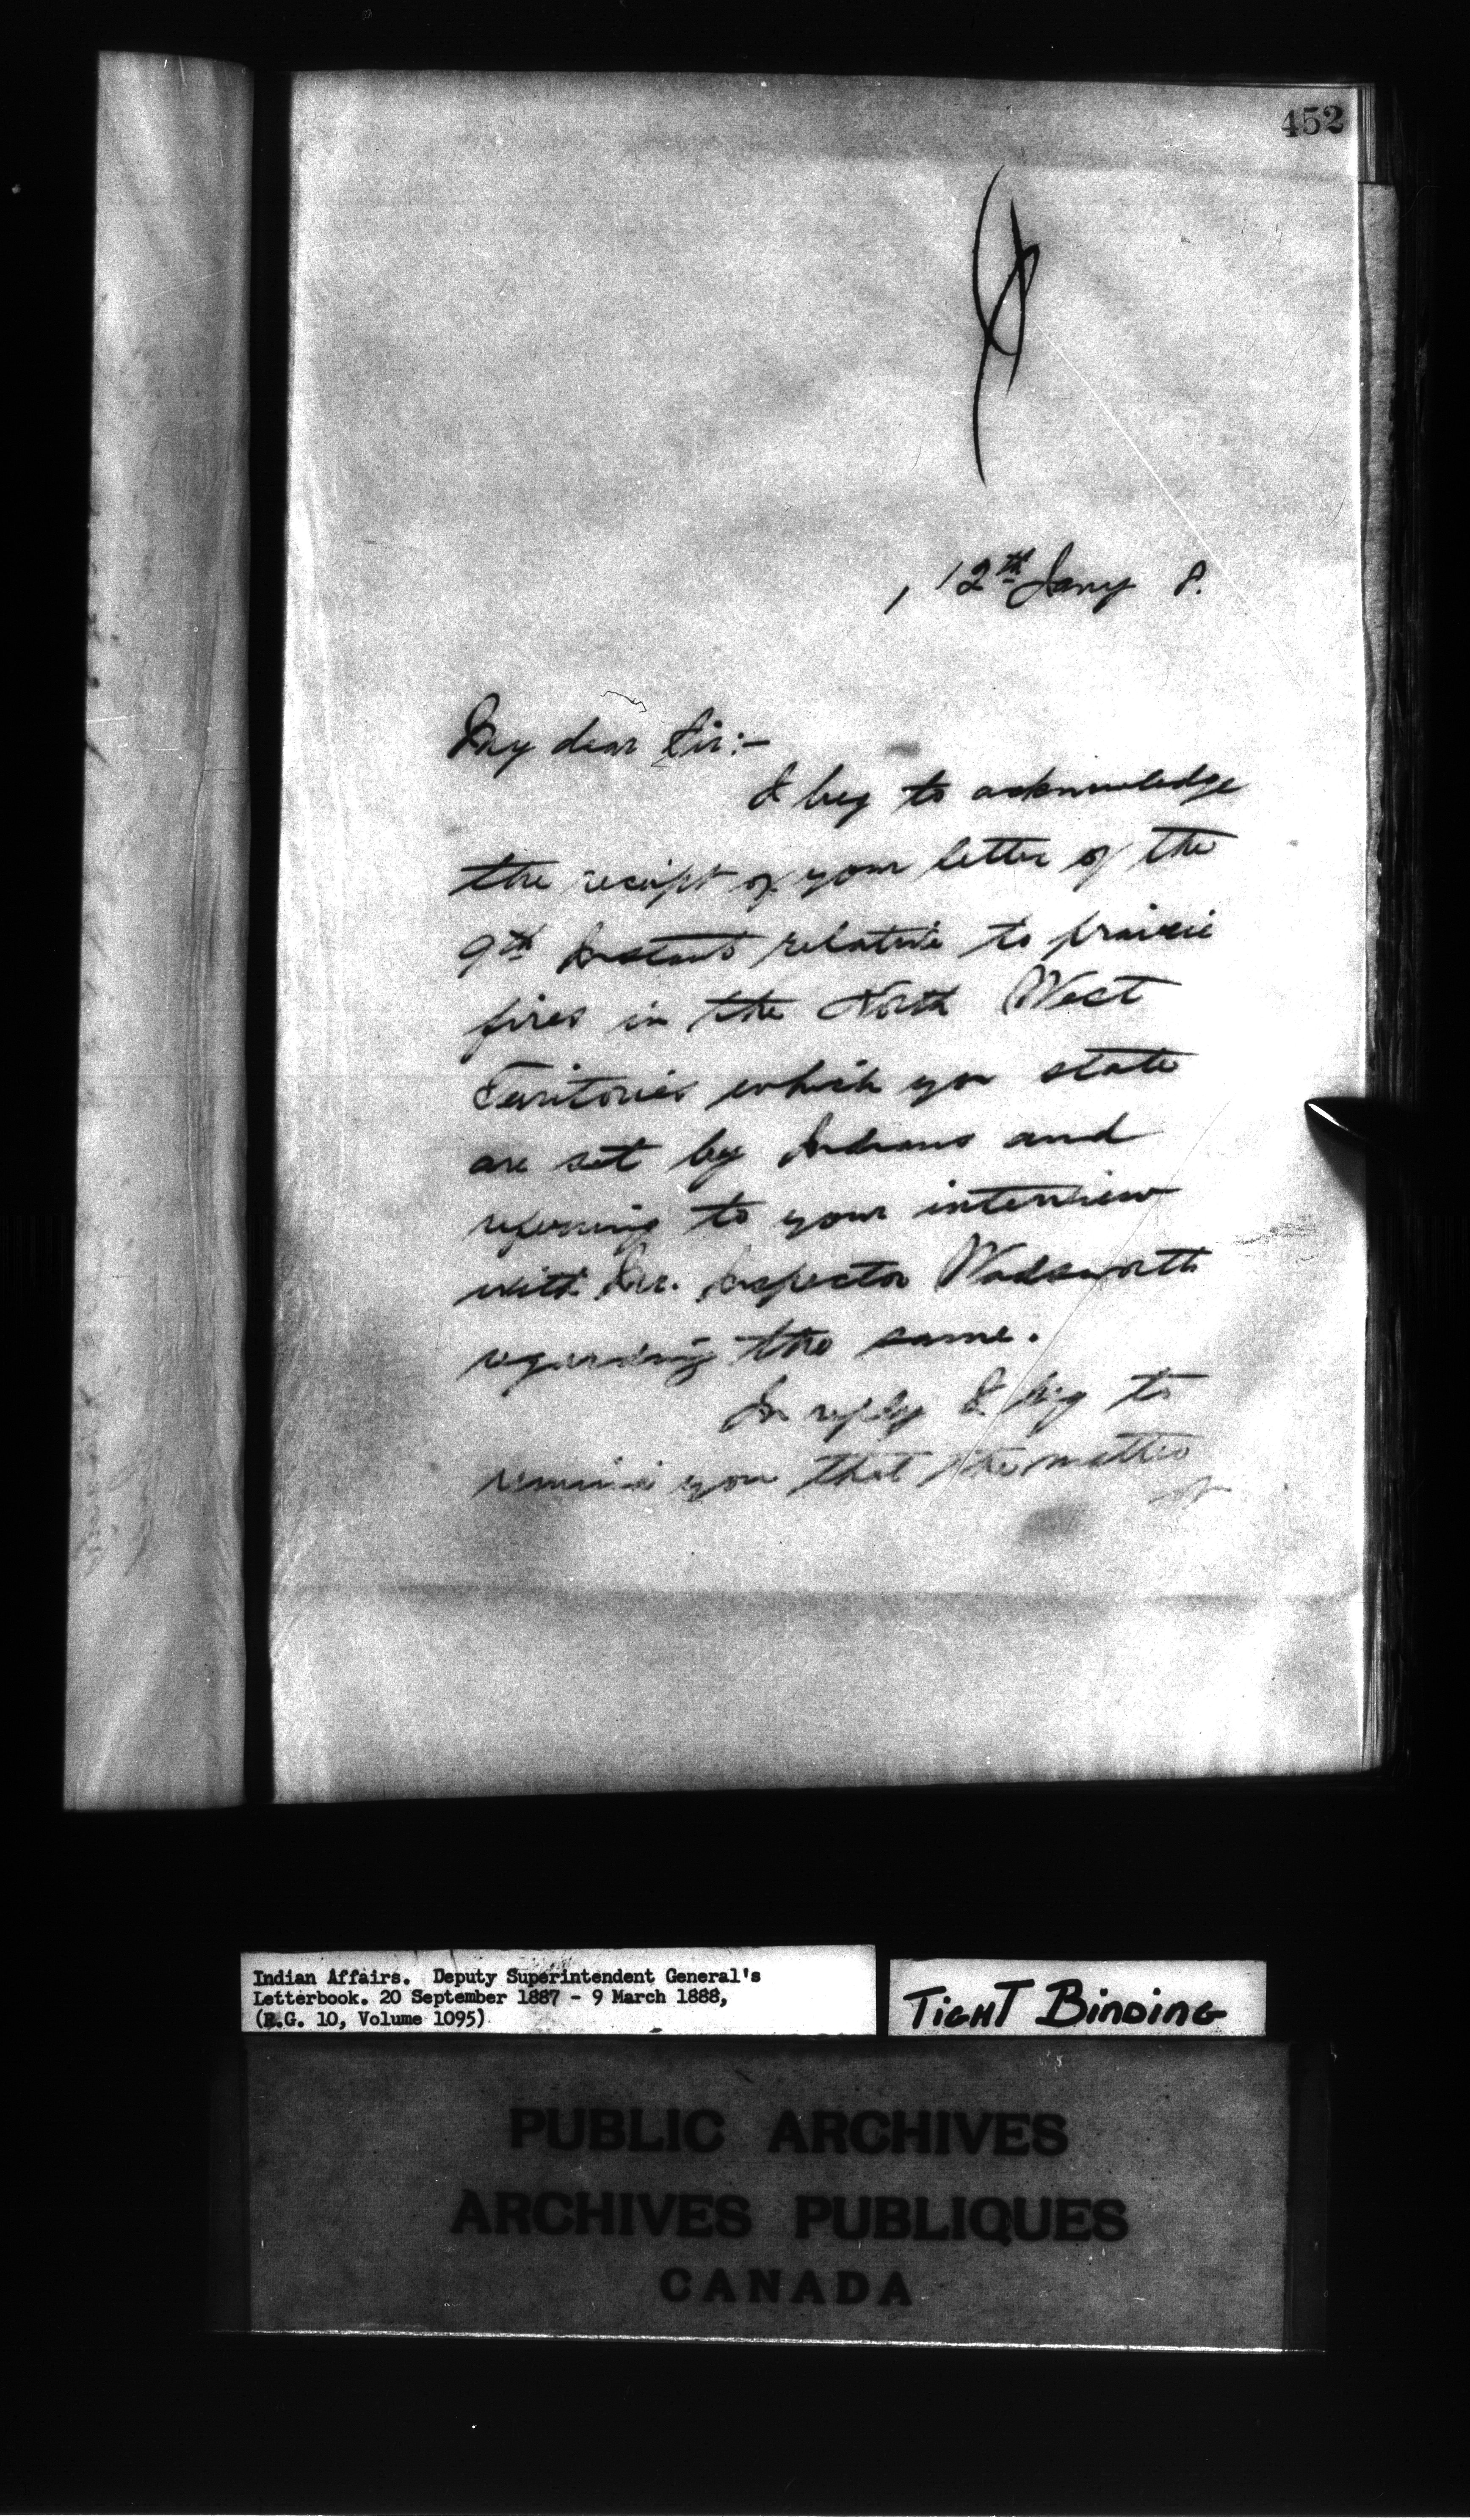 452
, 12th Jany 8.
My dear Sir:-
I beg to acknowledge
the receipt of your letter of the
9th Instant relative to prairie
fires in the North West
Territories which you state
are set by Indians and
referring to your interview
with Mr. Inspector Wadsworth
regarding the same.
In reply I beg to
remind you that the matter
of
Indian Affairs. Deputy Superintendent General's
Letterbook. 20 September 1887 - 9 March 1888,
(R.G. 10, Volume 1095)
TIGHT BINDING
PUBLIC ARCHIVES
ARCHIVES PUBLIQUES
CANADA